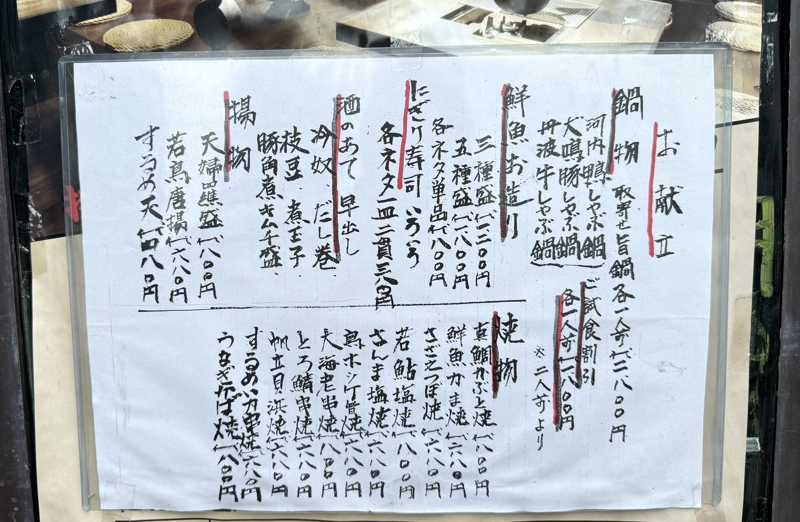 お献立
鍋物 取寄せ旨鍋 各一人前 代二八〇〇円
河内鴨しゃぶ鍋
犬鳴豚しゃぶ鍋
丹波牛しゃぶ鍋
ご試食割引
各一人前 代一八〇〇円
※二人前より
鮮魚お造り
三種盛 代一二〇〇円
五種盛 代一八〇〇円
各ネタ単品 代八〇〇円
にぎり寿司 いろいろ
各ネタ一皿二貫 三八〇円
酒のあて 早出し
冷奴 だし巻
枝豆、煮玉子、
豚角煮、キムチ盛、
揚物
天婦羅盛 代八〇〇円
若鳥唐揚 代六八〇円
するめ天 代四八〇円
焼物
真鯛かぶと焼 代八〇〇円
鮮魚かま焼 代六八〇円
さざえつぼ焼 代六八〇円
若鮎塩焼 代八〇〇円
さんま塩焼 代六八〇円
烏ホシケ旨焼 代八八〇円
大海老串焼 代八八〇円
とろ鯖串焼 代六八〇円
帆立貝浜焼 代六八〇円
するめいか串焼 代六八〇円
うなぎかば焼 代一八〇〇円